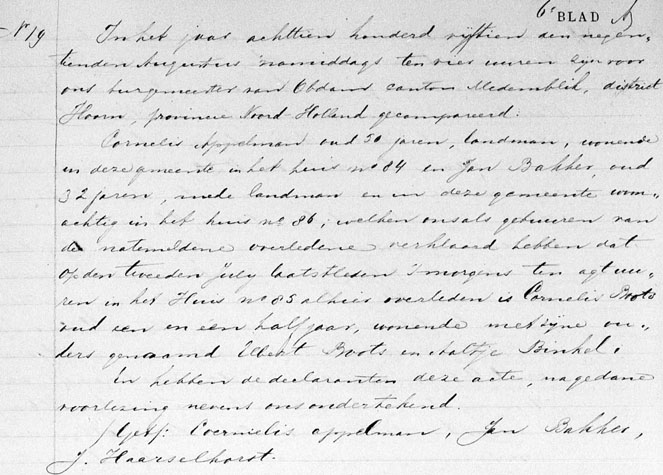 6e BLAD
No 19
In het jaar achttien honderd vijftien den negen-
tienden Augustus 'snamiddags ten vier uuren zijn voor
ons burgemeester van Obdam canton Medemblik, district
Hoorn, provincie Noord Holland gecompareerd.
Cornelis Appelman oud 50 jaren, landman, wonende
in deze gemeente in het huis no 84 en Jan Bakker, oud
32 jaren, mede landman en in deze gemeente woon-
achtig in het huis no 86; welken ons als gebuuren van
de natemeldene overledene verklaard hebben dat
op den tweeden July laatstleden 'smorgens ten agt uu-
ren in het Huis no 85 alhier overleden is Cornelis Boots
oud een en een half jaar, wonende met zijne ou-
ders genaamd Elbert Boots en Aaltje Binkel.
En hebben de declaranten deze acte, na gedane
voorlezing nevens ons ondertekend.
(Get): Coernelis appelman, Jan Bakker,
J. Haarselhorst.